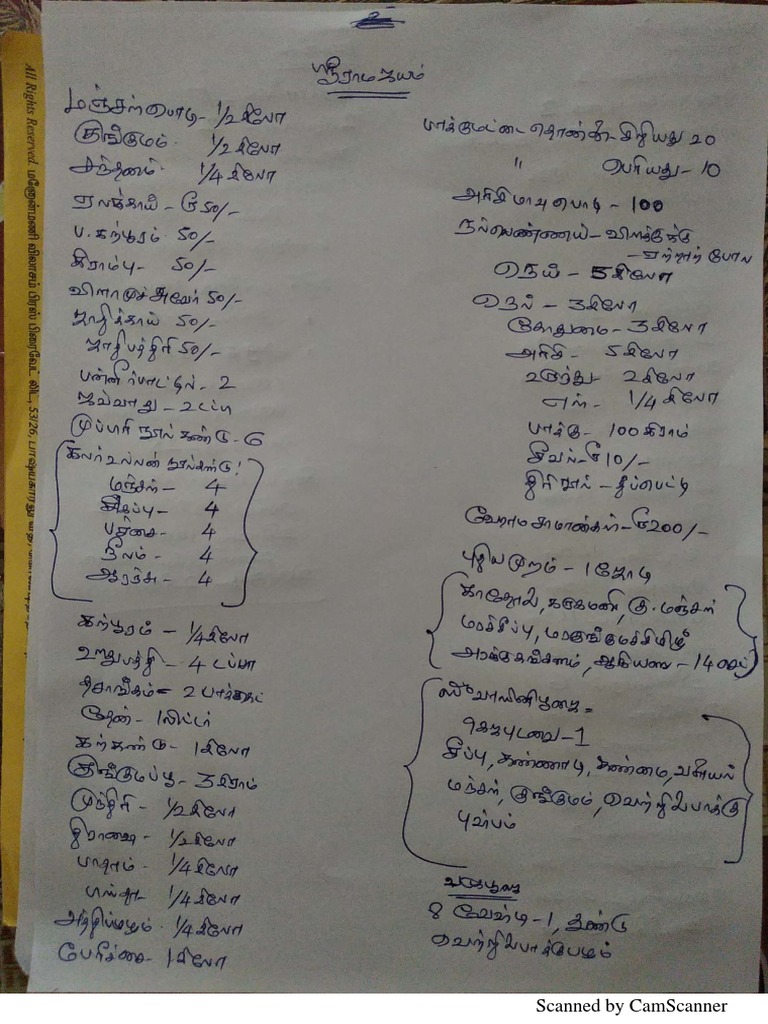 2
ஸ்ரீராமஜயம்
மஞ்சள்பொடி - 1/2 கிலோ
குங்குமம் - 1/2 கிலோ
சந்தனம் - 1/4 கிலோ
ஏலக்காய் - ரூ 50/-
ப. கற்பூரம் 50/-
கிராம்பு - 50/-
விளாமுச்சுவேர் 50/-
ஜாதிக்காய் 50/-
ஜாதிபத்திரி 50/-
பன்னீர்பாட்டில் - 2
ஜவ்வாது - 2 டப்பி
முப்புரி நூல் கண்டு - 6
கலர் உல்லன் நூல்கண்டு!
மஞ்சள் - 4
சிகப்பு - 4
பச்சை - 4
நீலம் - 4
ஆரஞ்சு - 4
கற்பூரம் - 1/4 கிலோ
ஊதுபத்தி - 4 டப்பா
தசாங்கம் = 2 பாக்கெட்
தேன் - 1 லிட்டர்
கற்கண்டு - 1 கிலோ
குங்குமப்பூ - 3 கிராம்
முந்திரி - 1/2 கிலோ
திராக்ஷை - 1/2 கிலோ
பாதாம் - 1/4 கிலோ
பிஸ்தா - 1/4 கிலோ
அத்திப்பழம் - 1/4 கிலோ
பேரீச்சை - 1 கிலோ
பாக்குமட்டை தொண்ணை - சிறியது 20
" பெரியது - 10
அரிசிமாவு பொடி - 100
நல்லெண்ணய் - விளக்குக்கு
- ஏற்றாற் போல
நெய் - 5 கிலோ
நெல் - 3 கிலோ
கோதுமை - 3 கிலோ
அரிசி - 5 கிலோ
உளுந்து - 2 கிலோ
எள் - 1/4 கிலோ
பாக்கு - 100 கிராம்
சீவல் - ரூ 10/-
திரிநூல் - தீப்பெட்டி
ஹோம சாமான்கள் - ரூ 200/-
புதிய முறம் - 1 ஜோடி
காதோலை, கருகமணி, கு. மஞ்சள்
மரச்சீப்பு, மரகுங்குமச்சிமிழ்
ஆகியவை - 14 செட்
ஸுவாஸினிபூஜை =
9 கஜபுடவை - 1
சீப்பு, கண்ணாடி, கண்மை, வளையல்
மஞ்சள், குங்குமம், வெற்றிலைபாக்கு
புஷ்பம்
வடுபூஜை
8 வேஷ்டி - 1, துண்டு
வெற்றிலைபாக்குபழம்
All Rights Reserved. மனோன்மணி விலாசம் பிரஸ் பிரைவேட் லிட்., 53/26,
Scanned by CamScanner